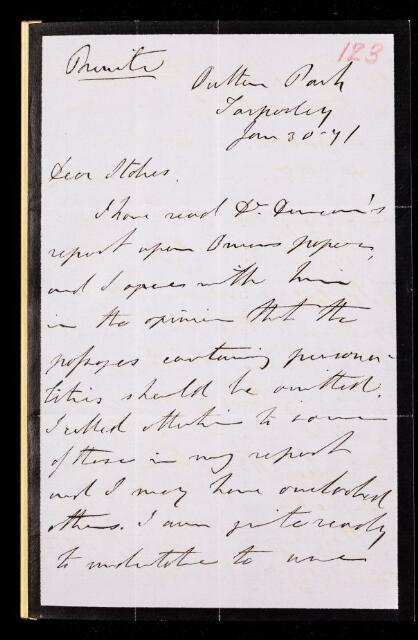 Private
123
Oulton Park
Tarporley
Jan 30-71
Dear Stokes.
I have read Dr. Duncan's
report upon Owens papers,
and I agree with him
in the opinion that the
passages containing persona-
lities should be omitted.
I called attention to some
of these in my report
and I may have overlooked
others. I am quite ready
to undertake to use